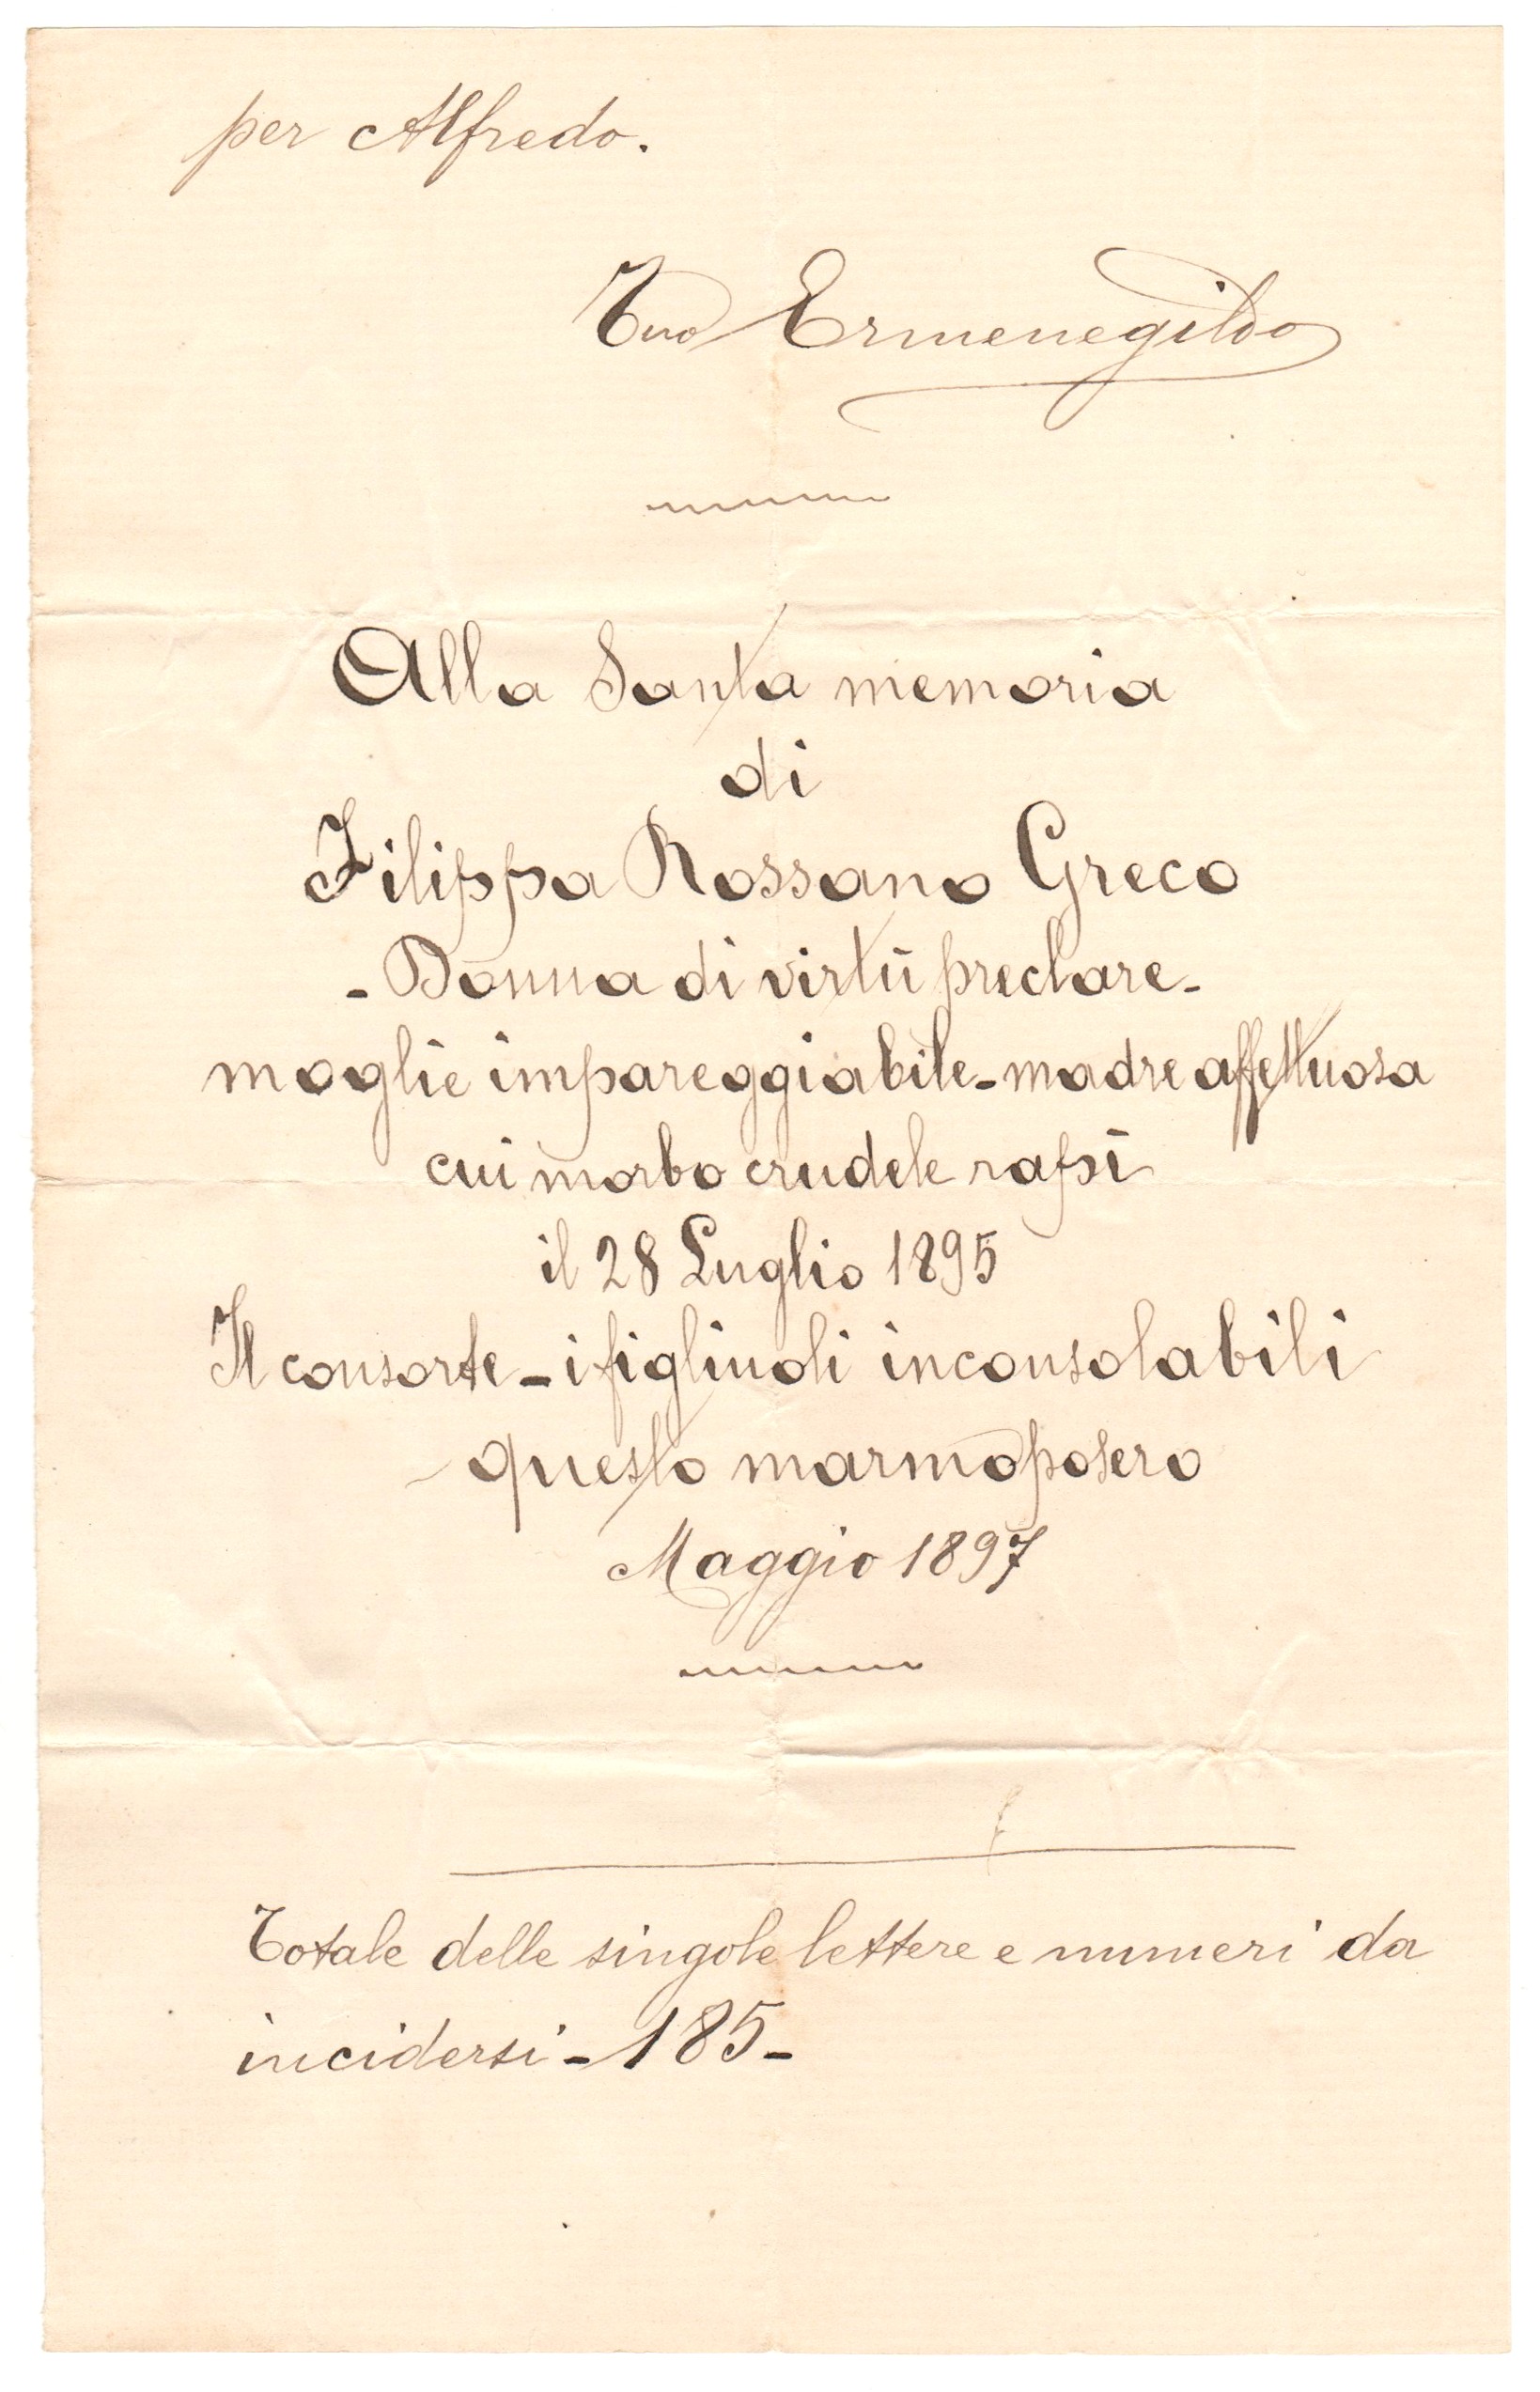 per Alfredo.
Tuo Ermenegildo
Alla Santa memoria
di
Filippa Rossano Greco
- Donna di virtù preclare -
moglie impareggiabile - madre affettuosa
cui morbo crudele rapì
il 28 Luglio 1895
Il consorte - i figliuoli inconsolabili
questo marmo posero
Maggio 1897
Totale delle singole lettere e numeri da
incidersi - 185 -